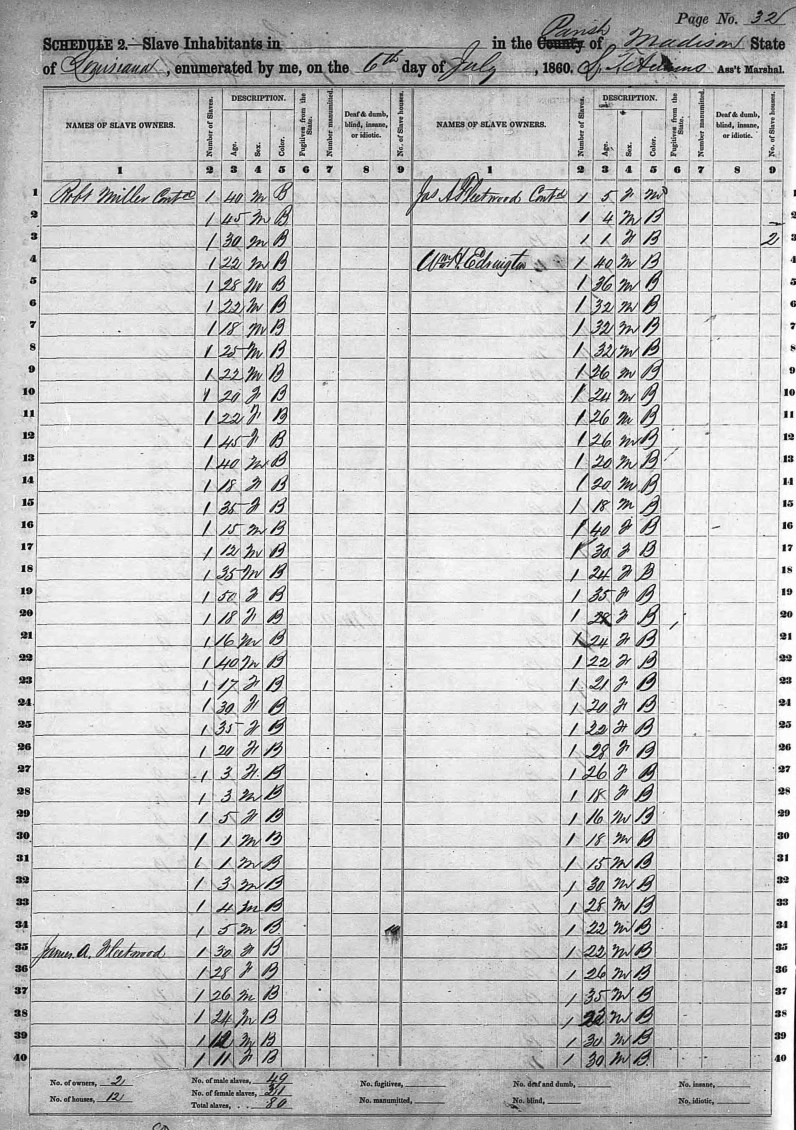 Page No. 32
SCHEDULE 2.—Slave Inhabitants in in the County Parish of Madison State
of Louisiana, enumerated by me, on the 6th day of July, 1860. Ass't Marshal.
NAMES OF SLAVE OWNERS. Number of Slaves. DESCRIPTION. Age. Sex. Color. Fugitives from the State. Number manumitted. Deaf & dumb, blind, insane, or idiotic. No. of Slave houses. NAMES OF SLAVE OWNERS. Number of Slaves. DESCRIPTION. Age. Sex. Color. Fugitives from the State. Number manumitted. Deaf & dumb, blind, insane, or idiotic. No. of Slave houses.
1 2 3 4 5 6 7 8 9 1 2 3 4 5 6 7 8 9
1 Robt Miller Contd 1 40 M B Jas A Fleetwood Contd 1 5 F M 1
2 1 45 M B 1 4 M B 2
3 1 30 M B 1 1 F B 2 3
4 1 22 M B Wm H. Edrington 1 40 M B 4
5 1 28 M B 1 36 M B 5
6 1 22 M B 1 32 M B 6
7 1 18 M B 1 32 M B 7
8 1 25 M B 1 32 M B 8
9 1 22 M B 1 26 M B 9
10 1 20 F B 1 24 M B 10
11 1 22 F B 1 26 M B 11
12 1 45 F B 1 26 M B 12
13 1 40 M B 1 20 M B 13
14 1 18 F B 1 20 M B 14
15 1 35 F B 1 18 M B 15
16 1 15 M B 1 40 F B 16
17 1 12 M B 1 30 F B 17
18 1 35 M B 1 24 F B 18
19 1 50 F B 1 35 F B 19
20 1 18 F B 1 28 F B 20
21 1 16 M B 1 24 F B 21
22 1 40 M B 1 22 F B 22
23 1 17 F B 1 21 F B 23
24 1 30 F B 1 20 F B 24
25 1 35 F B 1 22 F B 25
26 1 20 F B 1 28 F B 26
27 1 3 F B 1 26 F B 27
28 1 3 M B 1 18 F B 28
29 1 5 F B 1 16 M B 29
30 1 1 M B 1 18 M B 30
31 1 1 M B 1 15 M B 31
32 1 3 M B 1 30 M B 32
33 1 4 M B 1 28 M B 33
34 1 5 M B 10 1 22 M B 34
35 James A. Fleetwood 1 30 F B 1 22 M B 35
36 1 28 F B 1 26 M B 36
37 1 26 M B 1 35 M B 37
38 1 24 M B 1 M B 38
39 1 12 M B 1 30 M B 39
40 1 11 F B 1 30 M B 40
No. of owners, 2 No. of male slaves, 49 No. fugitives, No. deaf and dumb, No. insane,
No. of houses, 12 No. of female slaves, 31 No. manumitted, No. blind, No. idiotic,
Total slaves, 80